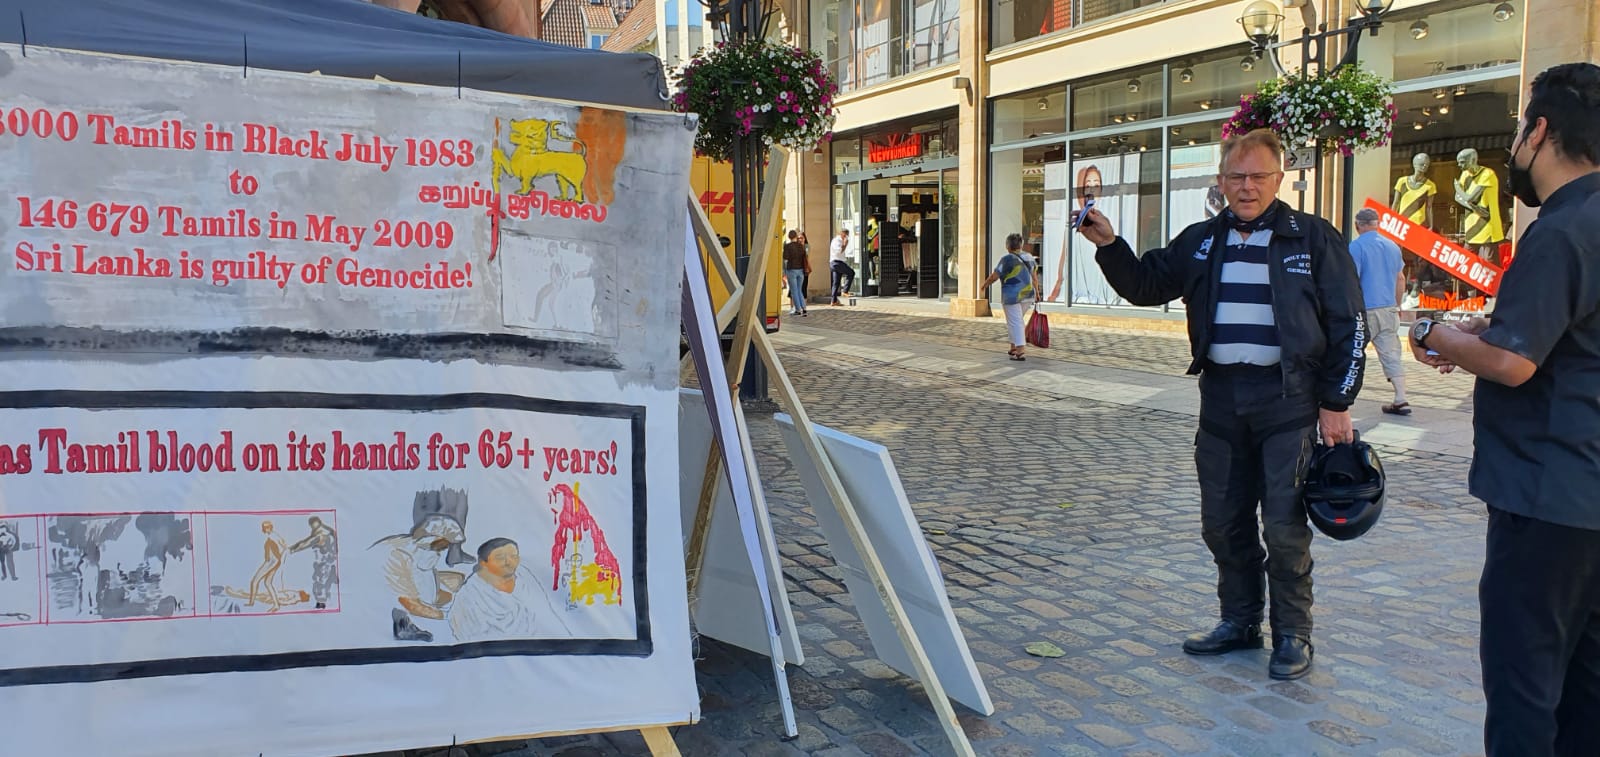 3000 Tamils in Black July 1983
to
கறுப்பு ஜூலை
146 679 Tamils in May 2009
Sri Lanka is guilty of Genocide!
as Tamil blood on its hands for 65+ years!
NEW YORKER
DHL
HOLY RIDERS
MC
GERMANY
JESUS LEBT
SALE
50% OFF
NEW YORKER